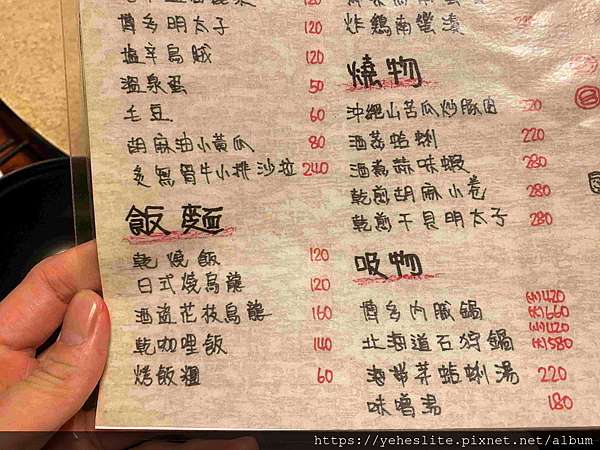 博多明太子 120
塩辛烏賊 120
溫泉蛋 50
毛豆 60
胡麻油小黃瓜 80
炙燒骨牛小排沙拉 240
飯麵
乾燒飯 120
日式燒烏龍 120
酒盜花枝烏龍 160
乾咖哩飯 140
烤飯糰 60
炸鷄南蠻漬 220
燒物
沖繩山苦瓜炒豚肉
酒蒸蛤蜊 220
酒煮蒜味蝦 280
乾煎胡麻小卷 280
乾煎干貝明太子 280
吸物
博多内臟鍋 (小)420 (大)660
北海道石狩鍋 (小)420 (大)580
海帶芽蛤蜊湯 220
味噌湯 180
https://yeheslite.pixnet.net/album